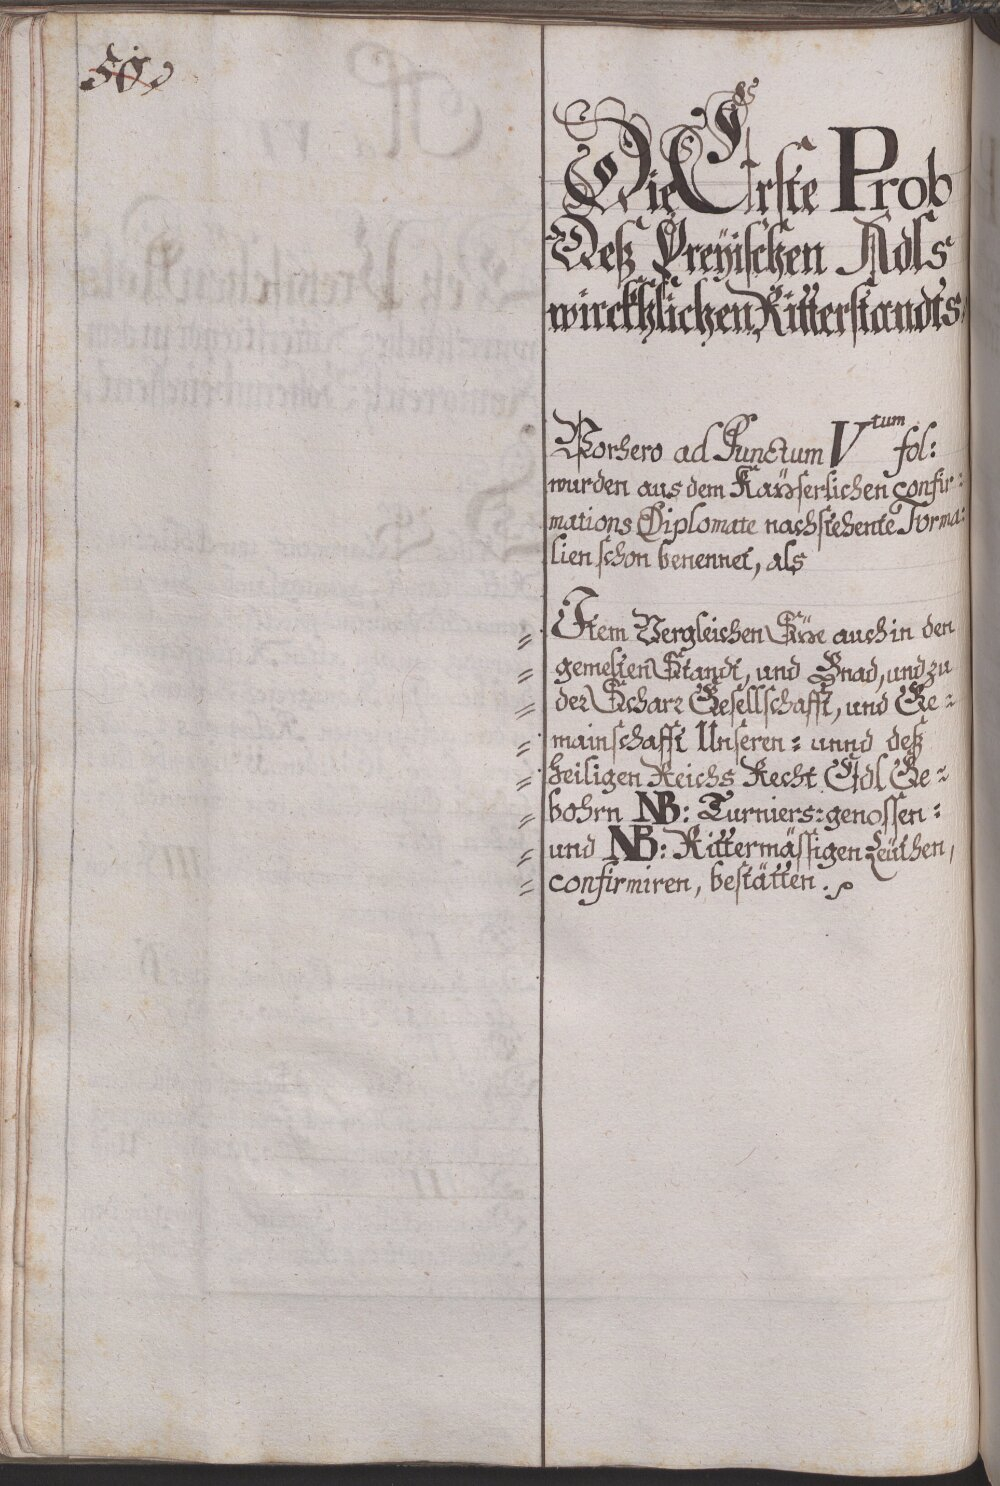 50.
Die Erste Prob
Deß Preyischen Adls
würckhlichen Ritterstandts.
Vorhero ad Punctum Vtum fol:
wurden aus dem Kaÿserlichen confir=
mations Diplomate nachstehente Forma=
lien schon benennet, als
Item Vergleichen Sÿe auch in den
gemelten Standt, und Gnad, und zu
der Scharr Gesellschafft, und Ge=
mainschafft Unseren= unnd deß
heiligen Reichs Recht Edl Ge=
bohrn NB: Turniers=genossen=
und NB: Rittermässigen Leüthen,
confirmiren, bestätten.